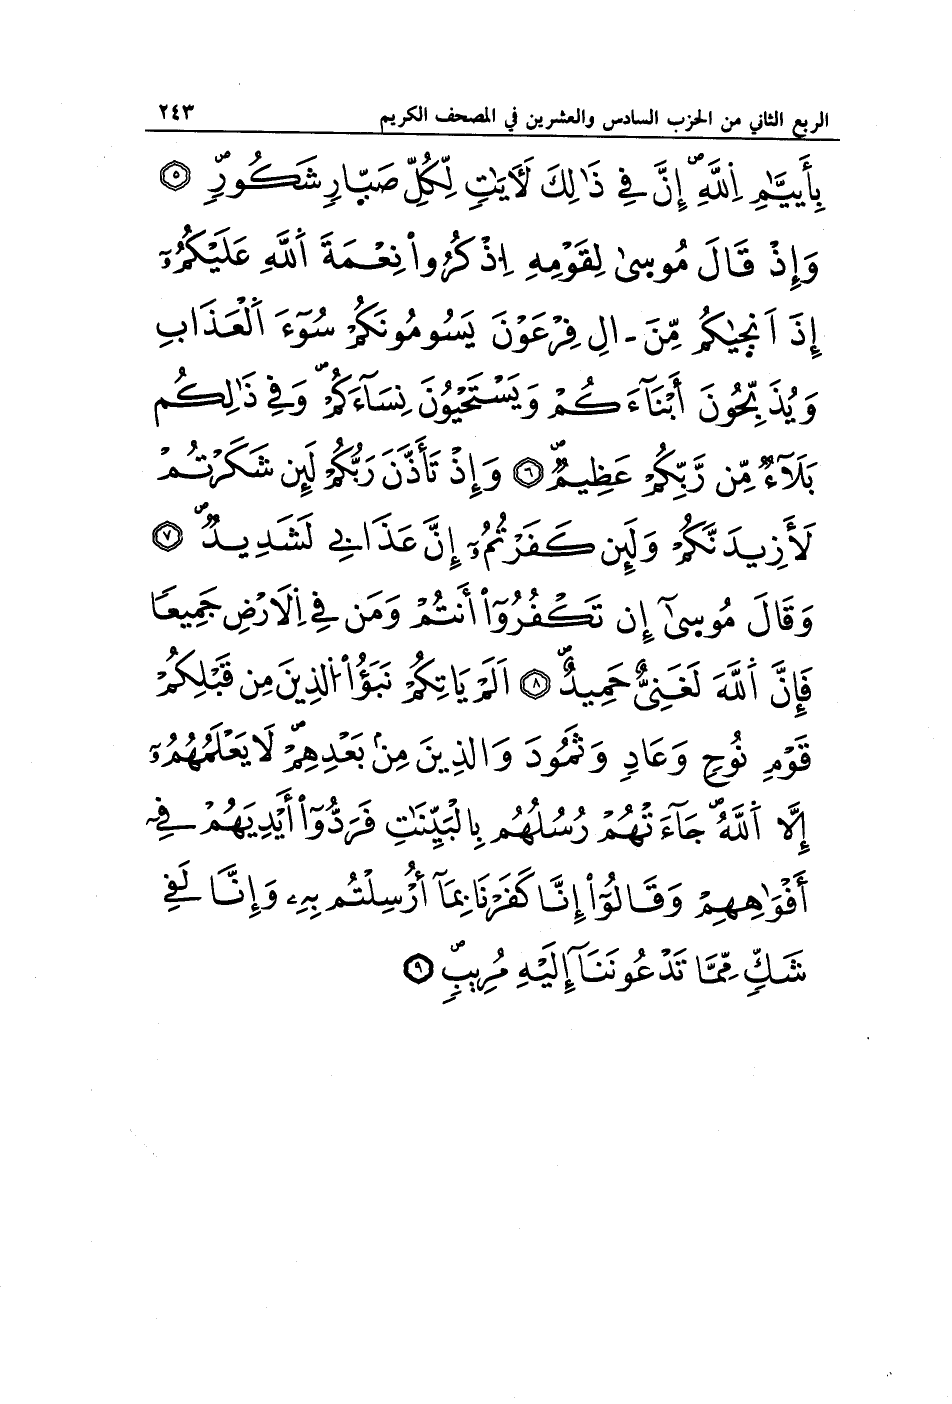 الربع الثاني من الحزب السادس والعشرين في المصحف الكريم ٢٤٣
بِأَيَّيٰمِ اِ۬للَّهِۖ إِنَّ فِي ذَٰلِكَ لَأٓيَٰتٖ لِّكُلِّ صَبّ۪ارٖ شَكُورٖۖ ٥
وَإِذْ قَالَ مُوسىٰ لِقَوْمِهِ اِ۪ذْكُرُواْ نِعْمَةَ اَ۬للَّهِ عَلَيْكُمُۥٓ
إِذَ اَنج۪يٰكُم مِّنَ ـ الِ فِرْعَوْنَ يَسُومُونَكُمْ سُوٓءَ اَ۬لْعَذَابِ
وَيُذَبِّحُونَ أَبْنَآءَكُمْ وَيَسْتَحْيُونَ نِسَآءَكُمْۖ وَفِي ذَٰلِكُم
بَلَآءٞ مِّن رَّبِّكُمْ عَظِيمٞۖ ٦ وَإِذْ تَأَذَّنَ رَبُّكُمْ لَئِن شَكَرْتُمْ
لَأَزِيدَنَّكُمْ وَلَئِن كَفَرْتُمُۥٓ إِنَّ عَذَابِي لَشَدِيدٞۖ ٧
وَقَالَ مُوسىٰٓ إِن تَكْفُرُوٓاْ أَنتُمْ وَمَن فِي اِ۬لَارْضِ جَمِيعاٗ
فَإِنَّ اَ۬للَّهَ لَغَنِيٌّ حَمِيدٌۖ ٨ اَلَمْ يَاتِكُمْ نَبَؤُاْ اُ۬لذِينَ مِن قَبْلِكُمْ
قَوْمِ نُوحٖ وَعَادٖ وَثَمُودَ وَالذِينَ مِنۢ بَعْدِهِمْۖ لَا يَعْلَمُهُمُۥٓ
إِلَّا اَ۬للَّهُۖ جَآءَتْهُمْ رُسُلُهُم بِالْبَيِّنَٰتِ فَرَدُّوٓاْ أَيْدِيَهُمْ فِےٓ
أَفْوَٰهِهِمْ وَقَالُوٓاْ إِنَّا كَفَرْنَا بِمَآ أُرْسِلْتُم بِهِۦ وَإِنَّا لَفِي
شَكّٖ مِّمَّا تَدْعُونَنَآ إِلَيْهِ مُرِيبٖۖ ٩